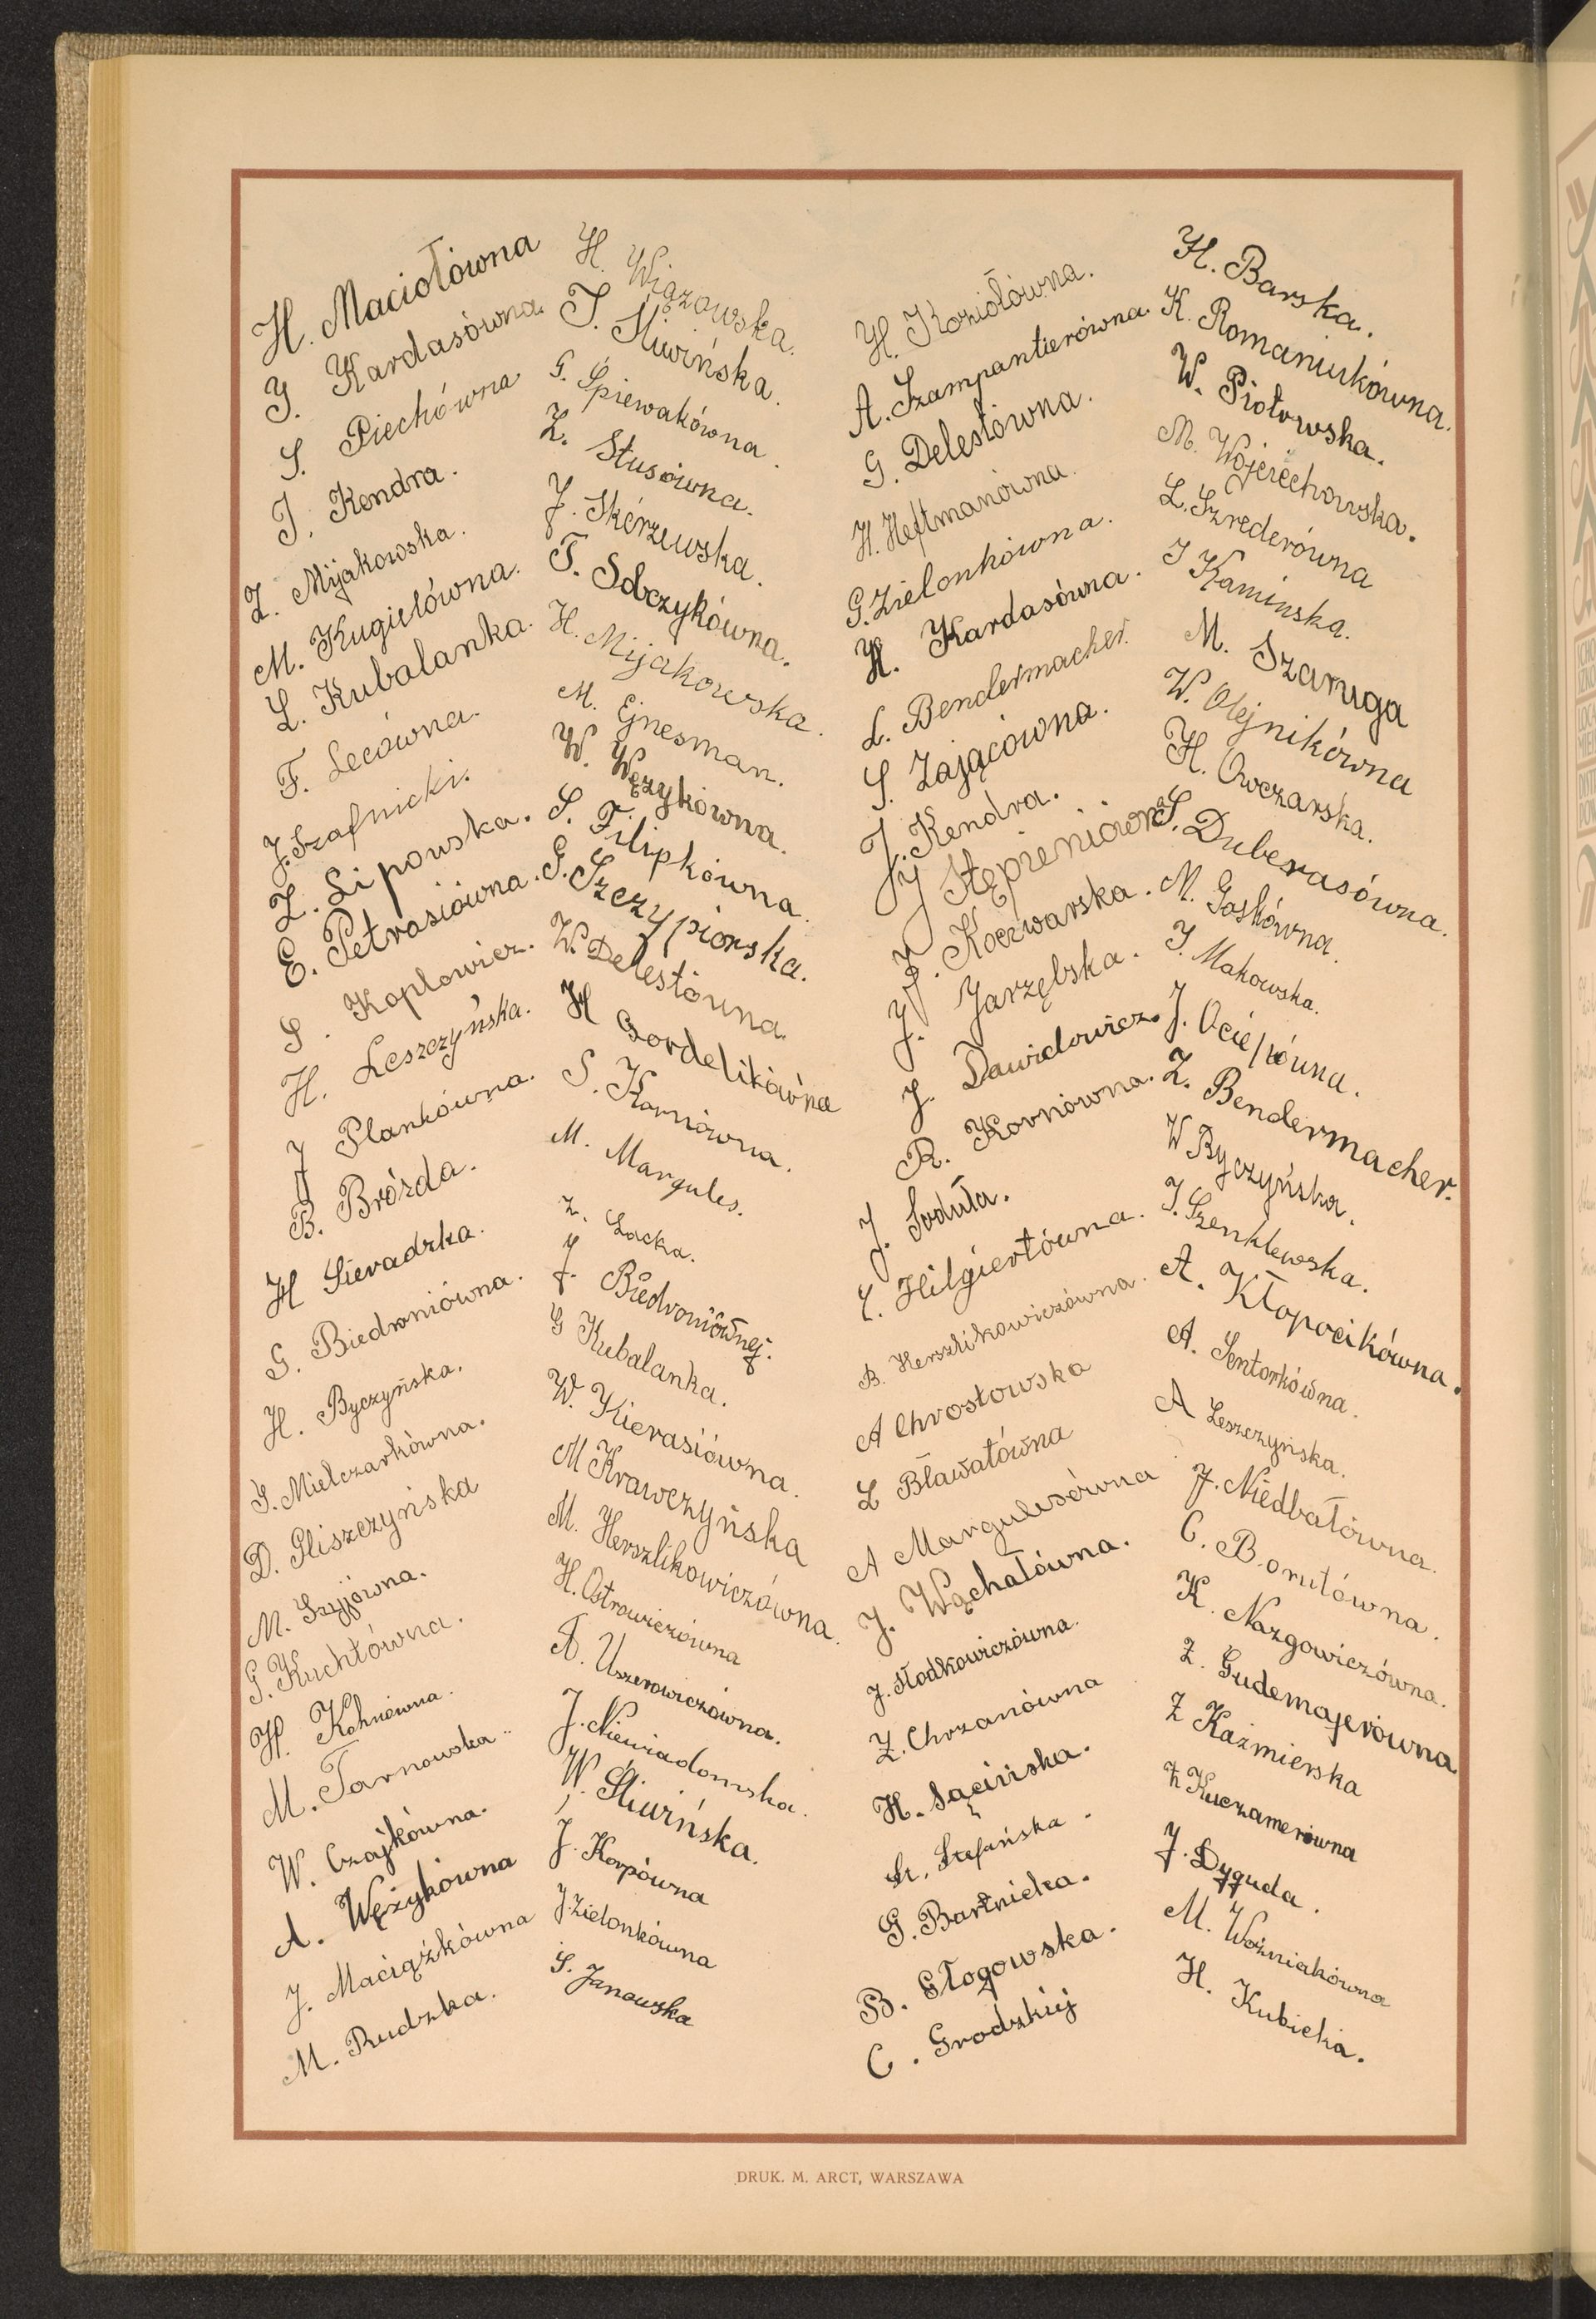 H. Maciołówna
J. Kardasówna.
S. Piechówna
J. Kendra.
Z. Mijakowska.
M. Kugielówna.
L. Kubalanka.
F. Lecówna.
J. Szafnicki.
Z. Lipowska.
E. Petrasiówna.
S. Koplowicz.
H. Leszczyńska.
J Plankówna.
B. Brózda.
H Sieradzka.
G. Biedroniówna.
H. Byczyńska.
J. Mielczarkówna.
D. Pliszczyńska
M. Szyjówna.
G. Kuchtówna.
H. Kohnówna.
M. Tarnowska
W. Czajkówna.
A. Wężykówna
J. Maciążkówna
M. Rudzka.
H. Wiązowska.
T. Śliwińska.
G. Śpiewakówna.
Z. Stusówna.
J. Skórzewska.
T. Sobczykówna.
H. Mijakowska.
M. Ejnesman.
W. Wężykówna.
S. Filipkówna.
G. Szczypiorska.
W. Delestówna.
H Gordelikówna
S. Korniówna.
M. Margules.
Z. Łacka.
J. Biedroniównej.
G Kubalanka.
W. Kierasiówna.
M Krawczyńska
M. Herszlikowiczówna.
H. Ostrowiczówna
A. Uszerowiczówna.
J. Niewiadomska.
W. Śliwińska.
J. Karpówna
J. Zielonkówna
S. Janowska
H. Koziołówna.
A. Szampantierówna.
G. Delestówna.
H. Heftmanówna.
G. Zielonkówna.
H. Kardasówna.
L. Bendermacher.
S. Zającówna.
J. Kendra.
J Stępieniówna
J. Koczwarska.
J. Jarzębska.
J. Dawidowicz.
R. Korniówna.
J. Soduła.
Z. Hilgiertówna.
B. Herszlikowiczówna.
A Chrostowska
L Bławatówna
A Margulesówna
J. Wąchałówna.
J. Słodkowiczówna.
Z. Chrzanówna
H. Sącińska.
St. Stefańska.
G. Bartnicka.
B. Głogowska.
C. Grodzkiej
H. Barska.
K. Romaniukówna.
W. Piotrowska.
M. Wojciechowska.
L. Szrederówna
J Kamińska.
M. Szaruga
W. Olejnikówna
H. Owczarska.
S. Duberasówna.
M. Goskówna.
J. Makowska.
J. Ociepówna.
Z. Bendermacher.
W Byczyńska.
J. Szenklewska.
A. Kłopocikówna.
A. Sentorkówna.
A Leszczyńska.
J. Niedbałówna.
C. Borutówna.
K. Nazgowiczówna.
Z. Gudemajerówna
Z Kaźmierska
Z Kuczamerówna
J. Dyguda.
M. Woźniakówna
H. Kubicka.
DRUK. M. ARCT, WARSZAWA